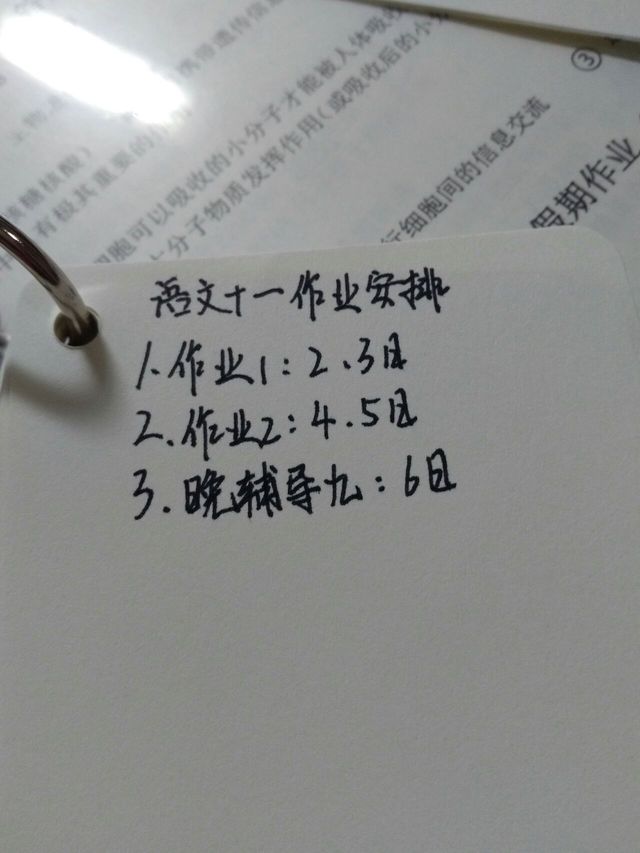 携带遗传信息
核糖核酸)
有极其重要的
细胞可以吸收的小分子才能被人体吸收
大分子物质发挥作用(或吸收后的小分
行细胞间的信息交流
③
假期作业
语文十一作业安排
1.作业1:2.3日
2.作业2:4.5日
3.晚辅导九:6日